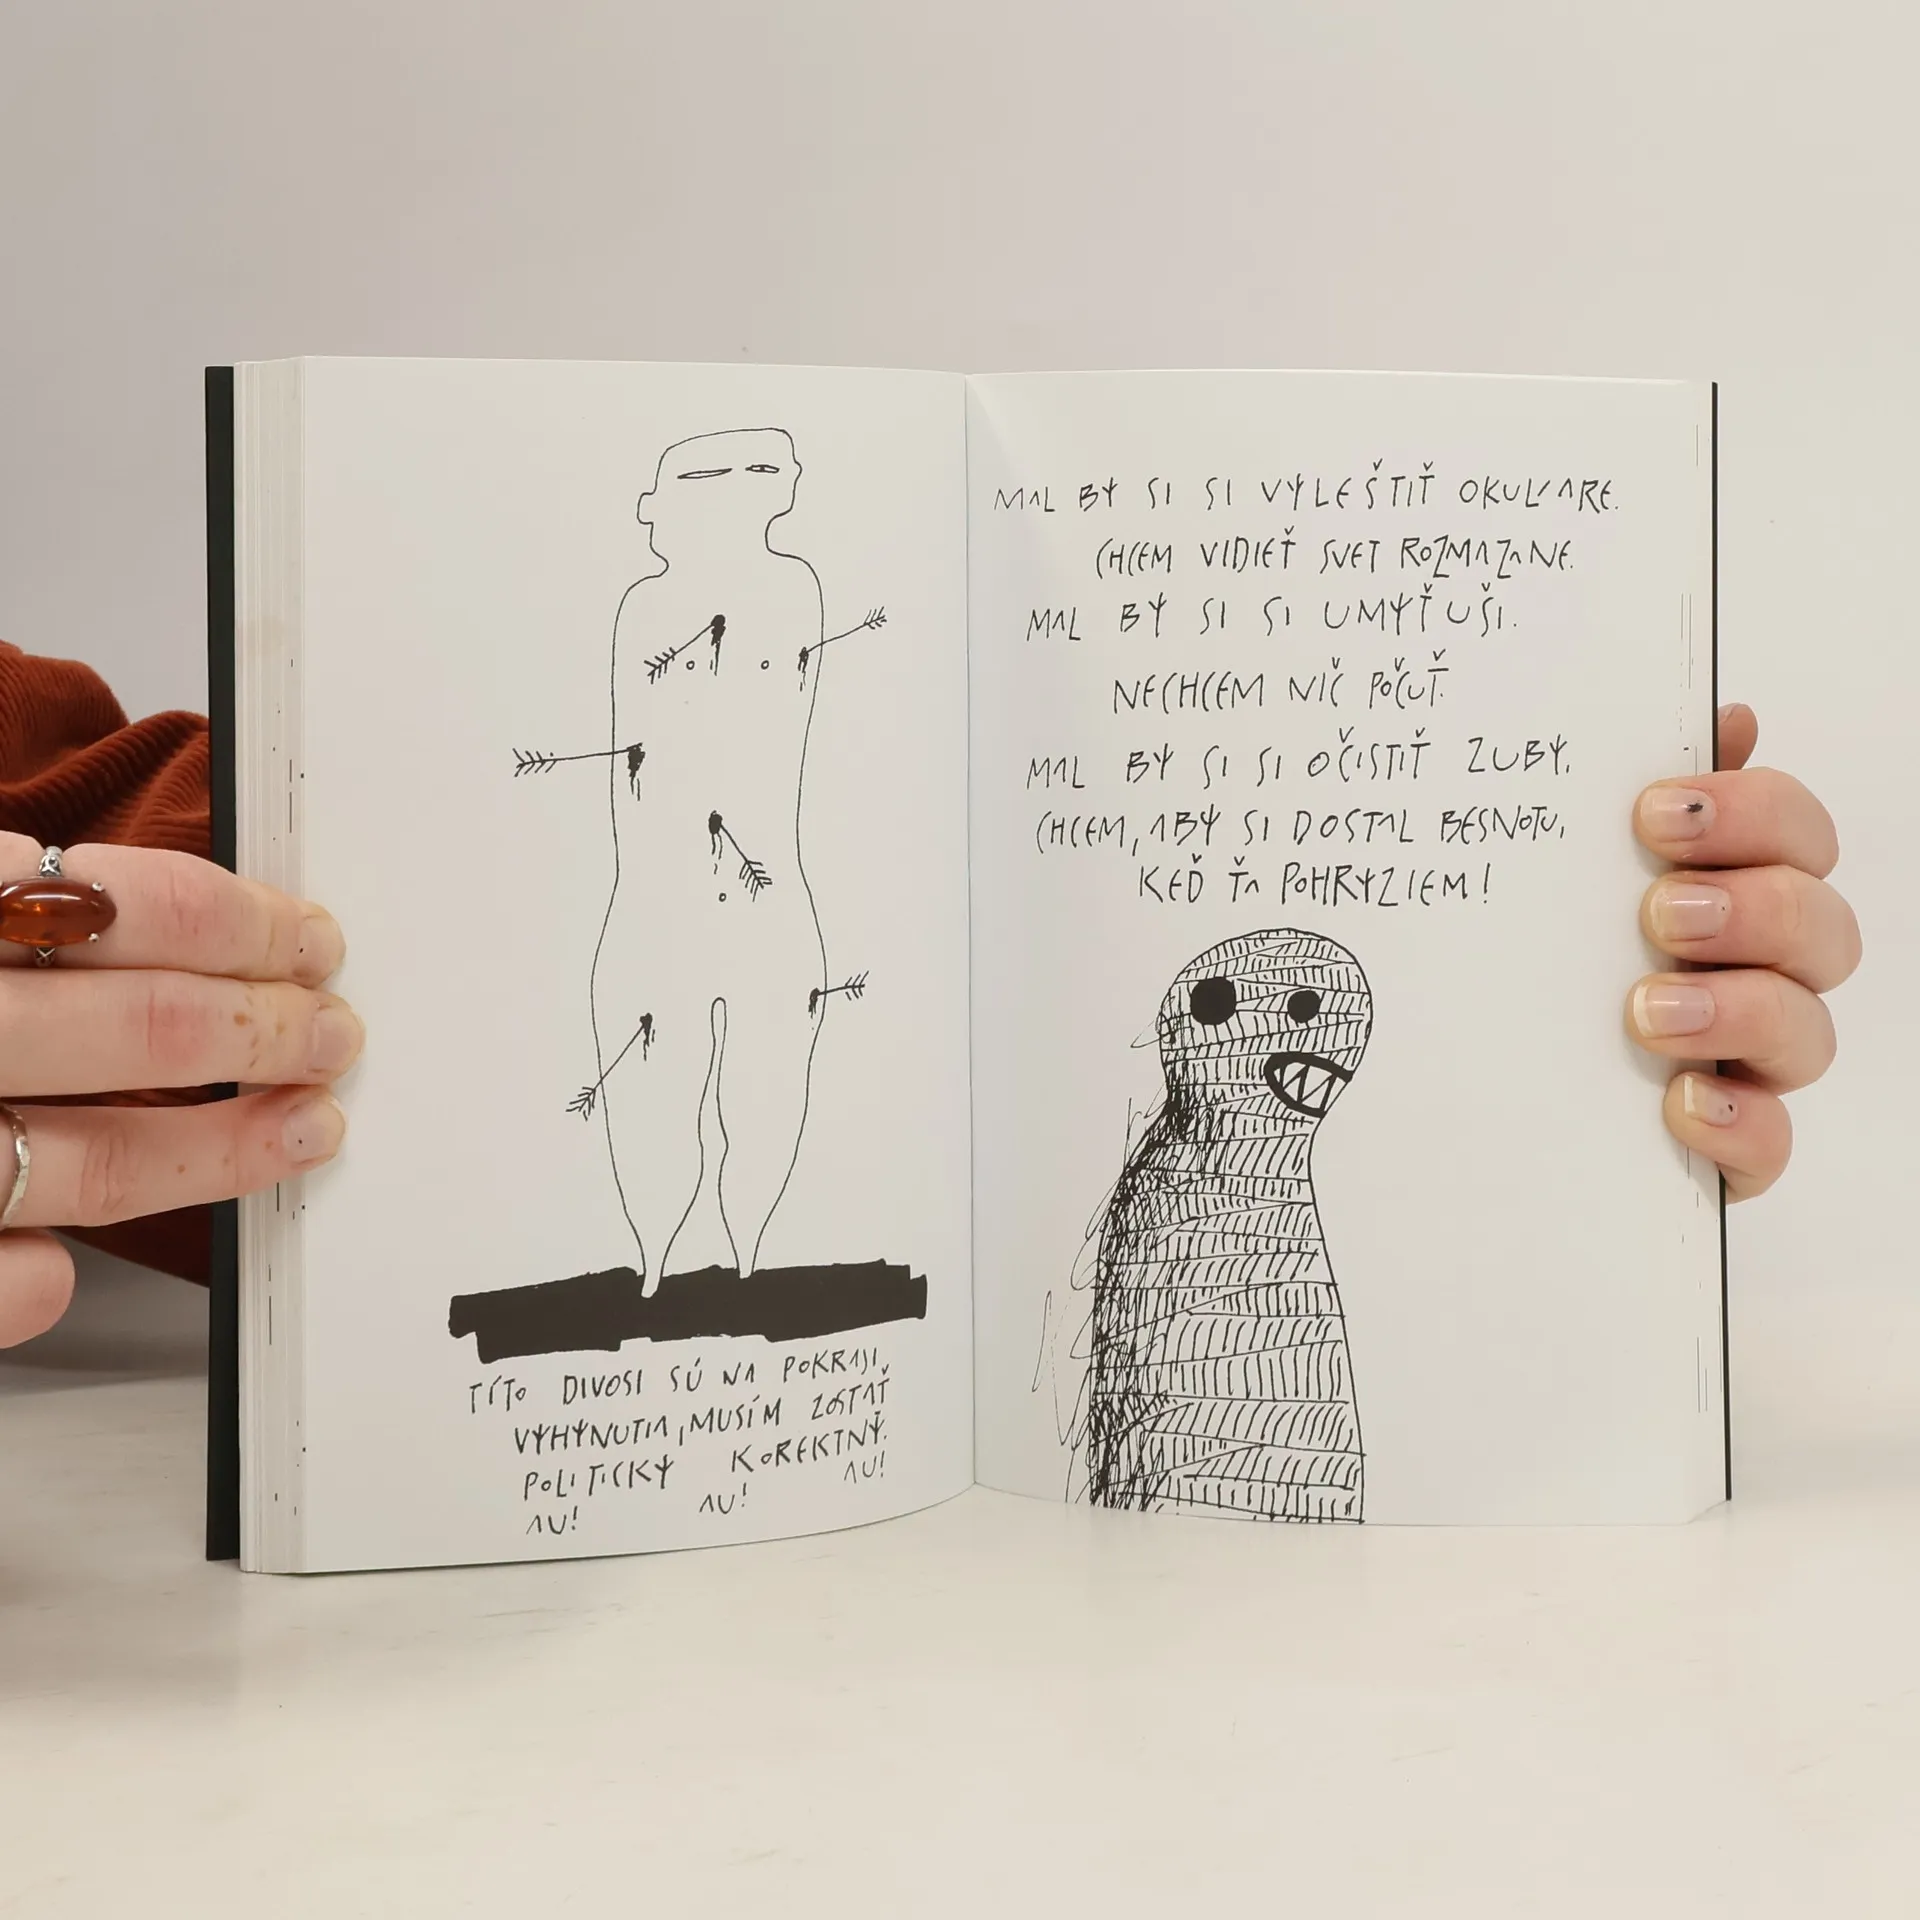 TÍTO DIVOSI SÚ NA POKRAJI
VYHYNUTIA, MUSÍM ZOSTAŤ
POLITICKY KOREKTNÝ.
AU! AU! AU!
MAL BY SI SI VYLEŠTIŤ OKULIARE.
CHCEM VIDIEŤ SVET ROZMAZANE.
MAL BY SI SI UMYŤ UŠI.
NECHCEM NIČ POČUŤ.
MAL BY SI SI OČISTIŤ ZUBY.
CHCEM, ABY SI DOSTAL BESNOTU,
KEĎ ŤA POHRYZIEM!